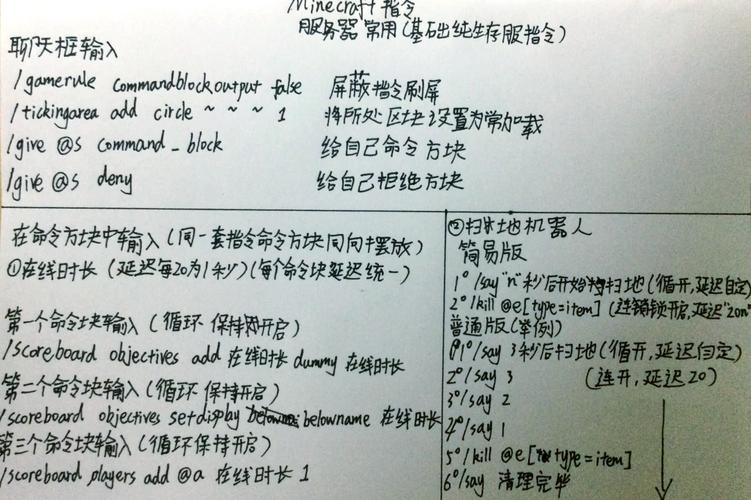 Minecraft 指令
服务器常用(基础纯生存服指令)
聊天框输入
/gamerule commandblockoutput false 屏蔽指令刷屏
/tickingarea add circle ~ ~ ~ 1 将所处区块设置为常加载
/give @s command_block 给自己命令方块
/give @s deny 给自己拒绝方块
在命令方块中输入(同一套指令命令方块同向摆放)
①在线时长(延迟每20为1秒)(每个命令块延迟统一)
第一个命令块输入(循环 保持开启)
/scoreboard objectives add 在线时长 dummy 在线时长
第二个命令块输入(循环 保持开启)
/scoreboard objectives setdisplay belowname 在线时长
第三个命令块输入(循环 保持开启)
/scoreboard players add @a 在线时长 1
②扫地机器人
简易版
1° /say "n"秒后开始扫地(循开,延迟自定)
2° /kill @e[type=item](连锁开启,延迟"20n")
普通版(举例)
1° /say 3秒后扫地(循开,延迟自定)
2° /say 3 (连开,延迟20)
3° /say 2
4° /say 1
5° /kill @e[type=item]
6° /say 清理完毕